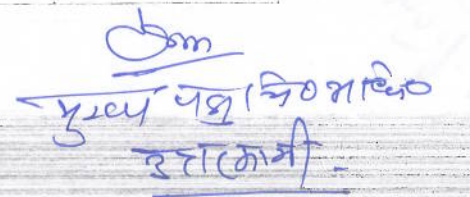 मुख्य पशु चि० अधि०
उत्तरकाशी -